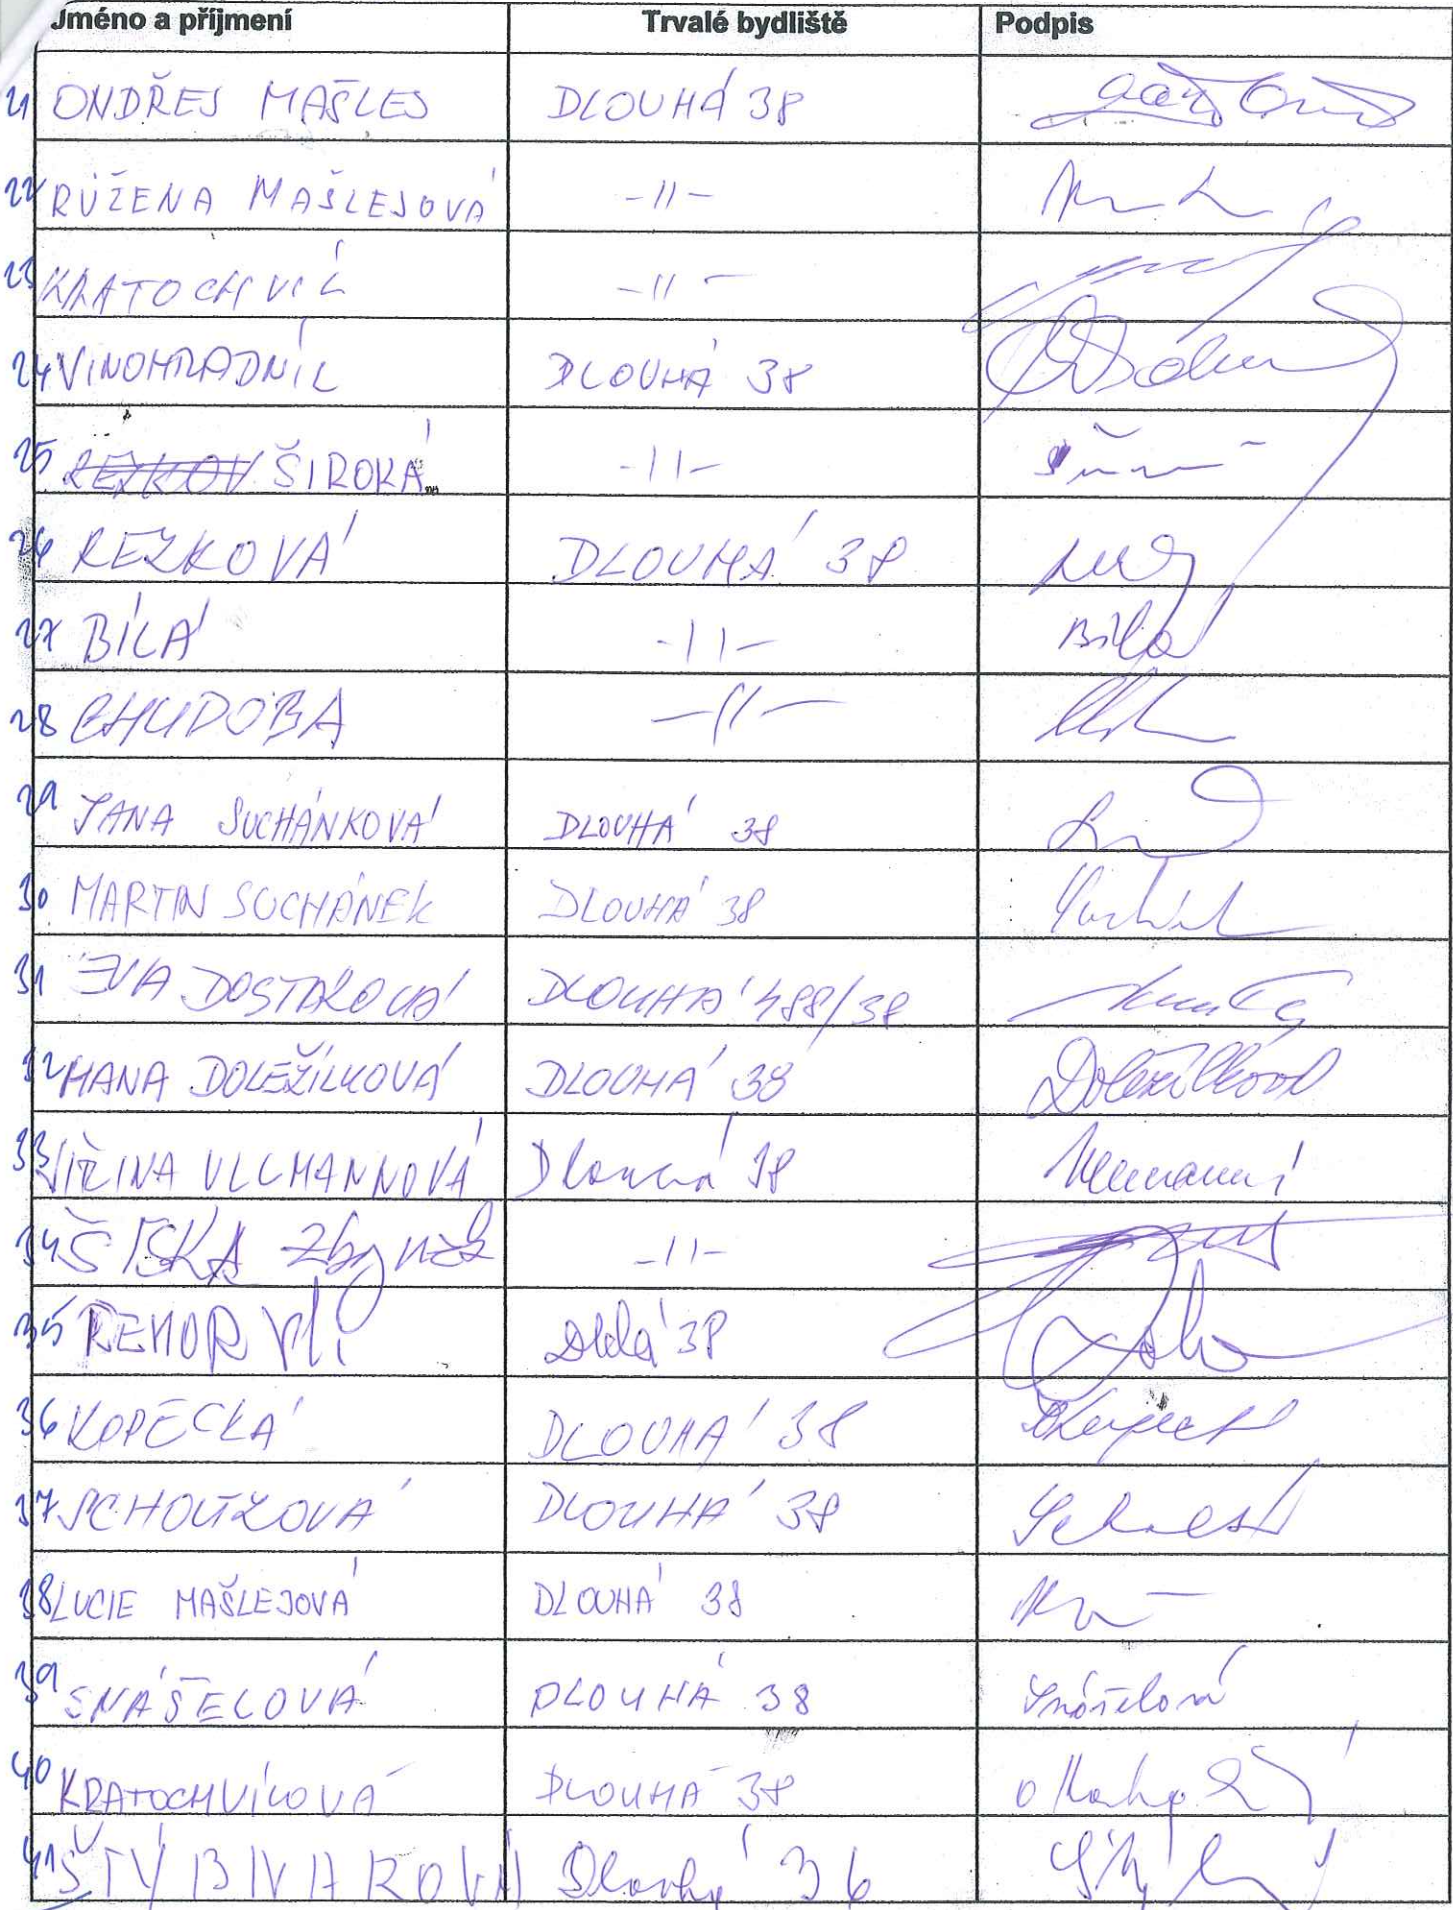 Jméno a příjmení Trvalé bydliště Podpis
21 ONDŘEJ MAŠLEJ DLOUHÁ 38
22 RŮŽENA MAŠLEJOVÁ -11-
23 KRATOCHVÍL -11-
24 VINOHRADNÍK DLOUHÁ 38
25 REZKOV ŠIROKÁ -11-
26 REZKOVÁ DLOUHÁ 38
27 BÍLÁ -11- Bílá
28 CHUDOBA -11-
29 JANA SUCHÁNKOVÁ DLOUHÁ 38
30 MARTIN SUCHÁNEK DLOUHÁ 38
31 EVA DOSTÁLOVÁ DLOUHÁ 488/38
32 HANA DOLEŽÍLKOVÁ DLOUHÁ 38 Doležílková
33 JIŘINA ULLMANNOVÁ Dlouhá 38
34 ŠIŠKA Zbyněk -11-
35 ŘEHOŘ Vl. Dlhá 38
36 KOPECKÁ DLOUHÁ 38
37 DLOUHÁ 38
38 LUCIE MAŠLEJOVÁ DLOUHÁ 38
39 SNÁŠELOVÁ DLOUHÁ 38 Snášelová
40 KRATOCHVÍLOVÁ DLOUHÁ 38
41 ŠTÝBNAROVÁ Dlouhá 36